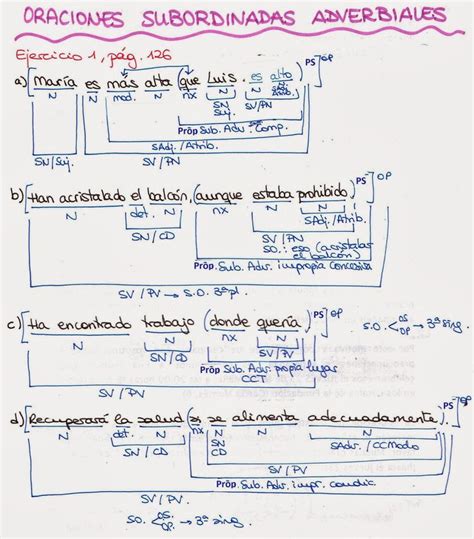 ORACIONES SUBORDINADAS ADVERBIALES
Ejercicio 1, pág. 126
a) [María es más alta (que Luis. es alto) PS] OP
N N mod. N nx N N N
SN Suj. SV/PN
Pròp Sub. Adv. Comp.
SAdj./Atrib.
SN/Suj. SV/PN
b) [Han acristalado el balcón, (aunque estaba prohibido) PS] OP
N det. N nx N N
SN/CD SAdj./Atrib.
SV/PN
SO.: eso (acristalar
el balcón)
Pròp. Sub. Adv. impropia Concesiva
SV/PV → S.O. 3ª pl.
c) [Ha encontrado trabajo (donde quería) PS] OP
N N nx N
SN/CD SV/PV
Pròp Sub. Adv. propia lugar
CCT
S.O. < OS OP → 3ª sing.
d) [Recuperará la salud (si se alimenta adecuadamente) PS] OP
N det. N nx N N N
SN/CD SN CD SAdv./CCModo
SV/PV
Pròp. Sub. Adv. impr. condic.
SV/PV.
SO. < OS. OP. → 3ª sing.